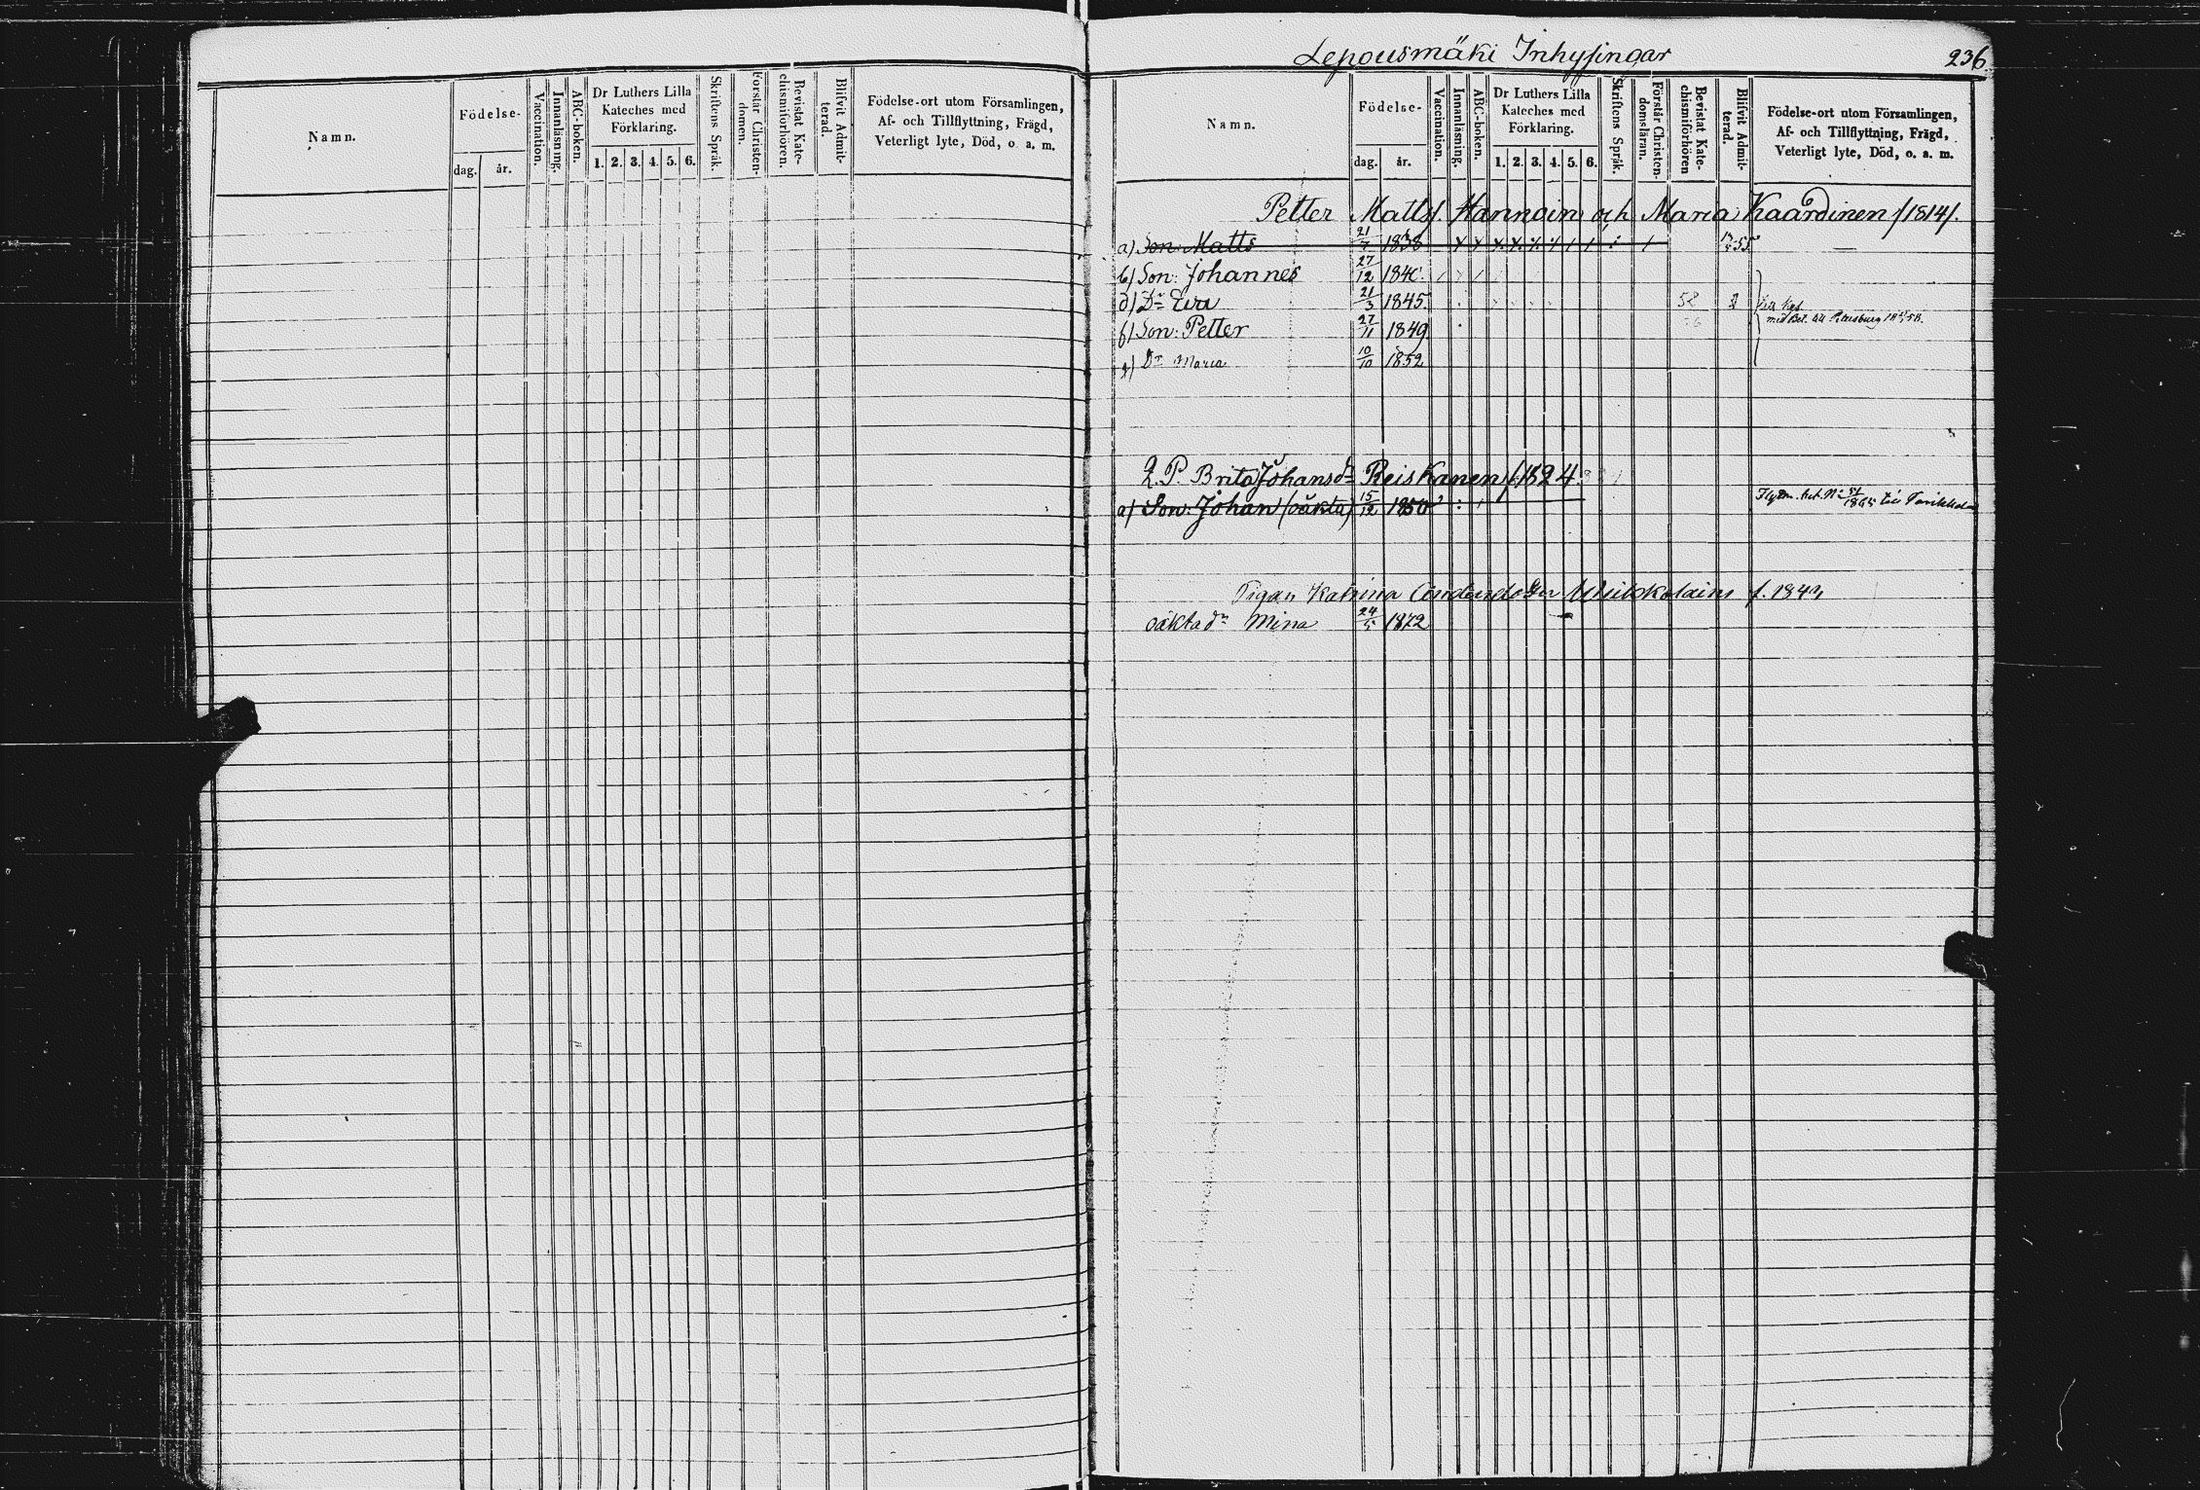 Namn.
Födelse-
dag.
år.
Vaccination.
Innanläsning.
ABC-boken.
Dr Luthers Lilla
Kateches med
Förklaring.
1. 2. 3. 4. 5. 6.
Skriftens Språk.
Förstår Christen-
domen.
Bevistat Kate-
chismiförhören.
Blifvit Admit-
terad.
Födelse-ort utom Församlingen,
Af- och Tillflyttning, Frägd,
Veterligt lyte, Död, o. a. m.
Lepousmäki Inhysingar
236.
Namn.
Födelse-
dag.
år.
Vaccination.
Innanläsning.
ABC-boken.
Dr Luthers Lilla
Kateches med
Förklaring.
1. 2. 3. 4. 5. 6.
Skriftens Språk.
Förstår Christen-
domsläran.
Bevistat Kate-
chismiförhören
Blifvit Admit-
terad.
Födelse-ort utom Församlingen,
Af- och Tillflyttning, Frägd,
Veterligt lyte, Död, o. a. m.
Petter Matts. Hannoin och Maria Kaardinen /1814/.
a) Son: Matts 21/7 1838
b) Son: Johannes 27/12 1840.
d) Dr Eva 21/3 1845. 58
med Bet. till Petersburg
f) Son: Petter 27/11 1849.
g) Dr Maria 10/10 1852
Q. P. Brita Johansdr Reiskanen /1824.
a) Son: Johan (oäkta) 15/12 1850
1865 till Parikkala
Pigan Katrina f. 184
oäkta dr Mina 24/5 1872